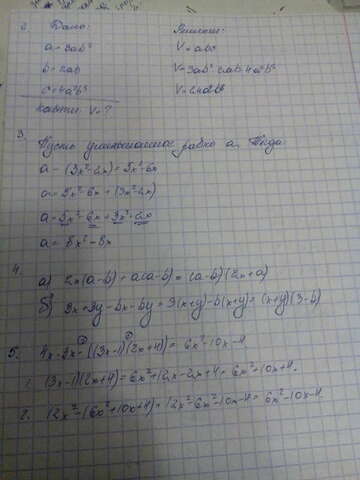 2. Дано: Решение:
a = 3ab² V = abc
b = 2ab V = 3ab² · 2ab · 4a²b³
c = 4a²b³
Найти: V - ?
3.
Пусть уменьшаемое равно a. Тогда
a - (3x² - 2x) = 5x² - 6x
a = 5x² - 6x + (3x² - 2x)
a = 5x² - 6x + 3x² - 2x
a = 8x² - 8x
4.
а) 2x(a-b) + a(a-b) = (a-b)(2x+a)
б) 3x + 3y - bx - by = 3(x+y) - b(x+y) = (x+y)(3-b)
5. 4x · 3x - ((3x-1)(2x+4)) = 6x² - 10x - 4
1. (3x-1)(2x+4) = 6x² + 12x - 2x + 4 = 6x² - 10x + 4.
2. 12x² - (6x² + 10x + 4) = 12x² - 6x² - 10x - 4 = 6x² - 10x - 4